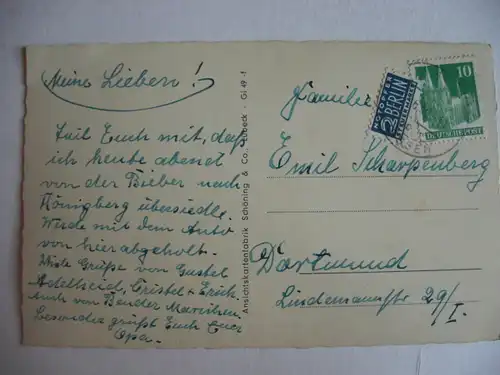 Meine Lieben!
Teil Euch mit, daß
ich heute abend
von der Bieber nach
Königberg übersiedle.
Werde mit dem Auto
von hier abgeholt.
Viele Grüße von Gustel
Adelheid, Cristel + Erich.
Auch von Bender Marichen.
Besonders grüßt Euch Euer
Opa.
Ansichtskartenfabrik Schöning & Co., Lübeck · Gi 49 - f
NOTOPFER
2 BERLIN
STEUERMARKE
10
DEUTSCHE POST
Familie
Emil Scharpenberg
Dortmund
Lindemannstr 29/I.